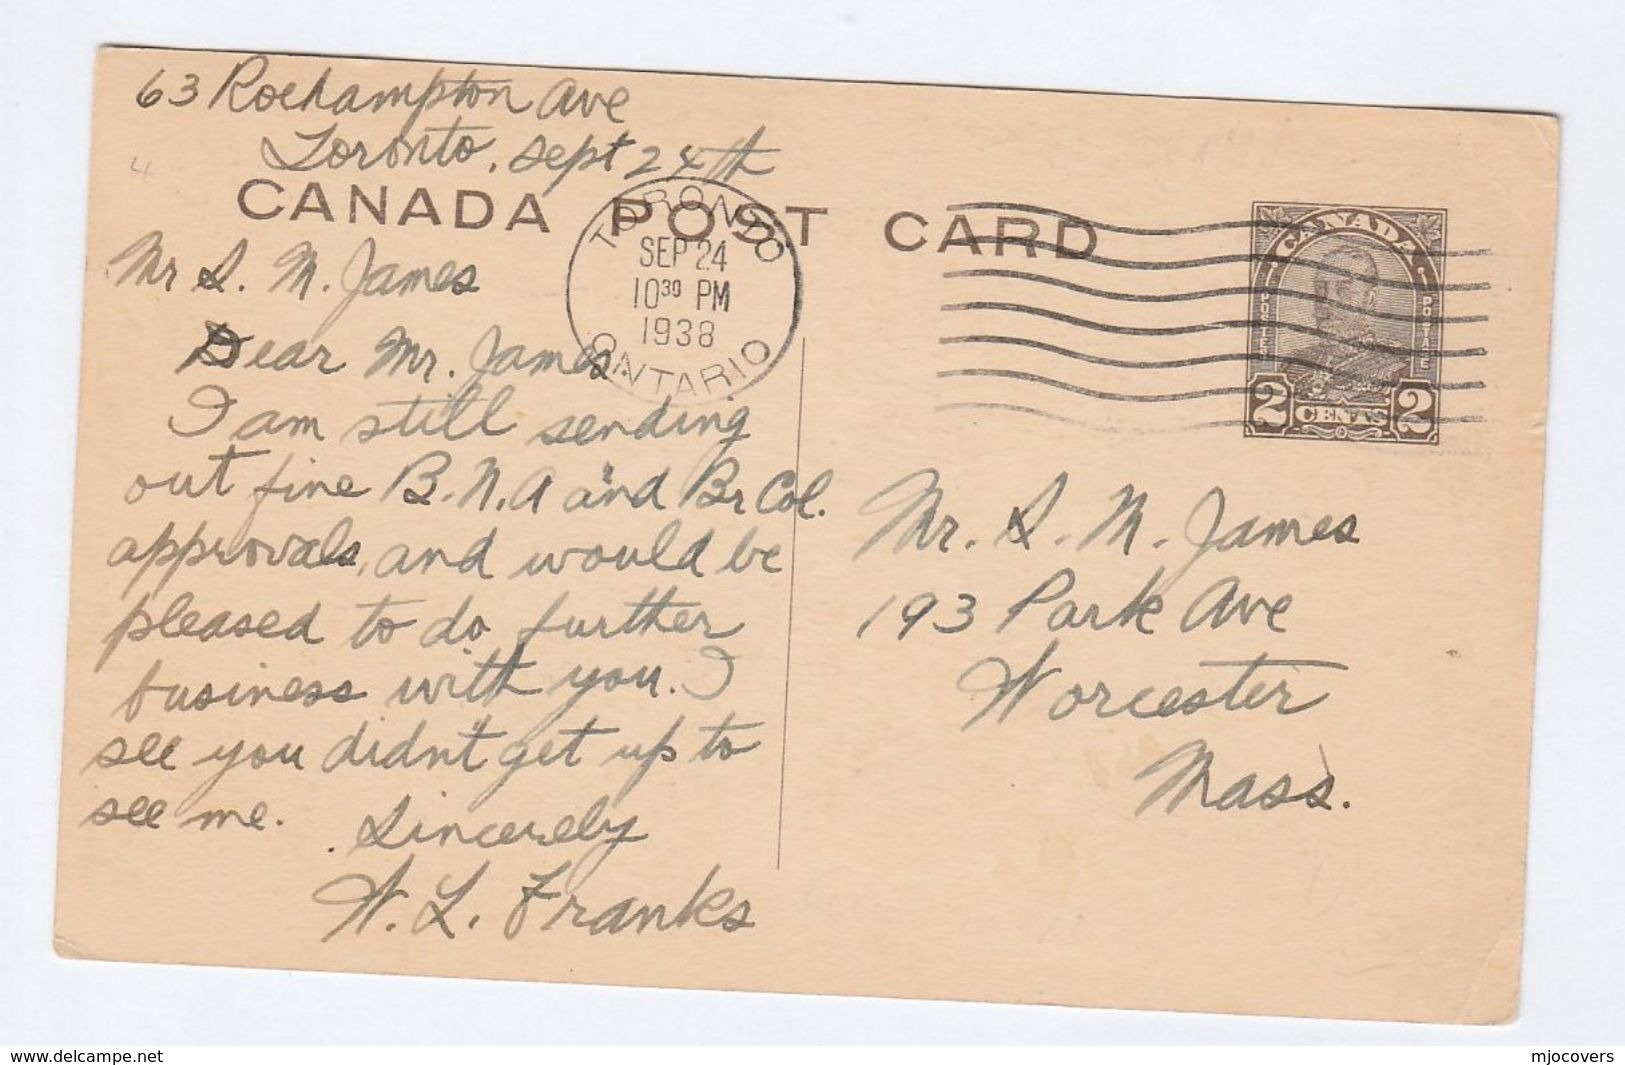 63 Roehampton Ave
Toronto, Sept 24th
CANADA POST CARD
TORONTO
SEP 24
10 30 PM
1938
ONTARIO
CANADA
POSTES POSTAGE
2 CENTS 2
Mr S. M. James
Dear Mr. James.
I am still sending
out fine B.N.A and Br Col.
approvals, and would be
pleased to do further
business with you. I
see you didn't get up to
see me.
Sincerely
W. L. Franks
Mr. S. M. James
193 Park Ave
Worcester
Mass.
www.delcampe.net
mjocovers